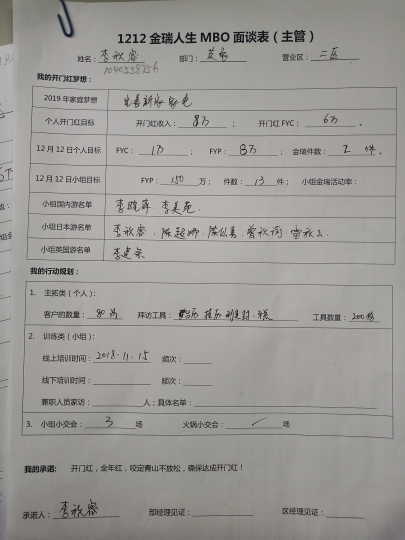 1212 金瑞人生 MBO 面谈表（主管）
姓名：李秋容 部门： 营业区：二区
1040558756
我的开门红梦想：
2019 年家庭梦想 完善新家家电
个人开门红目标 开门红收入：8万； 开门红 FYC：6万.
12 月 12 日个人目标 FYC：1万； FYP：8万 金瑞件数：2 件.
12 月 12 日小组目标 FYP：150 万； 件数：13 件； 小组金瑞活动率：
小组国内游名单 李晓萍. 李美苑.
小组日本游名单 李秋容.
小组英国游名单
我的行动规划：
1. 主拓类（个人）：
客户的数量：80 拜访工具：台历 挂历 工具数量：200份
2. 训练类（小组）：
线上培训时间：2018.11.15 频次：
线下培训时间： 频次：
兼职人员家访： 人；具体名单：
3. 小组小交会：3 场 火锅小交会：✓ 场
我的承诺： 开门红，全年红，咬定青山不放松，确保达成开门红！
承诺人：李秋容 部经理见证： 区经理见证：